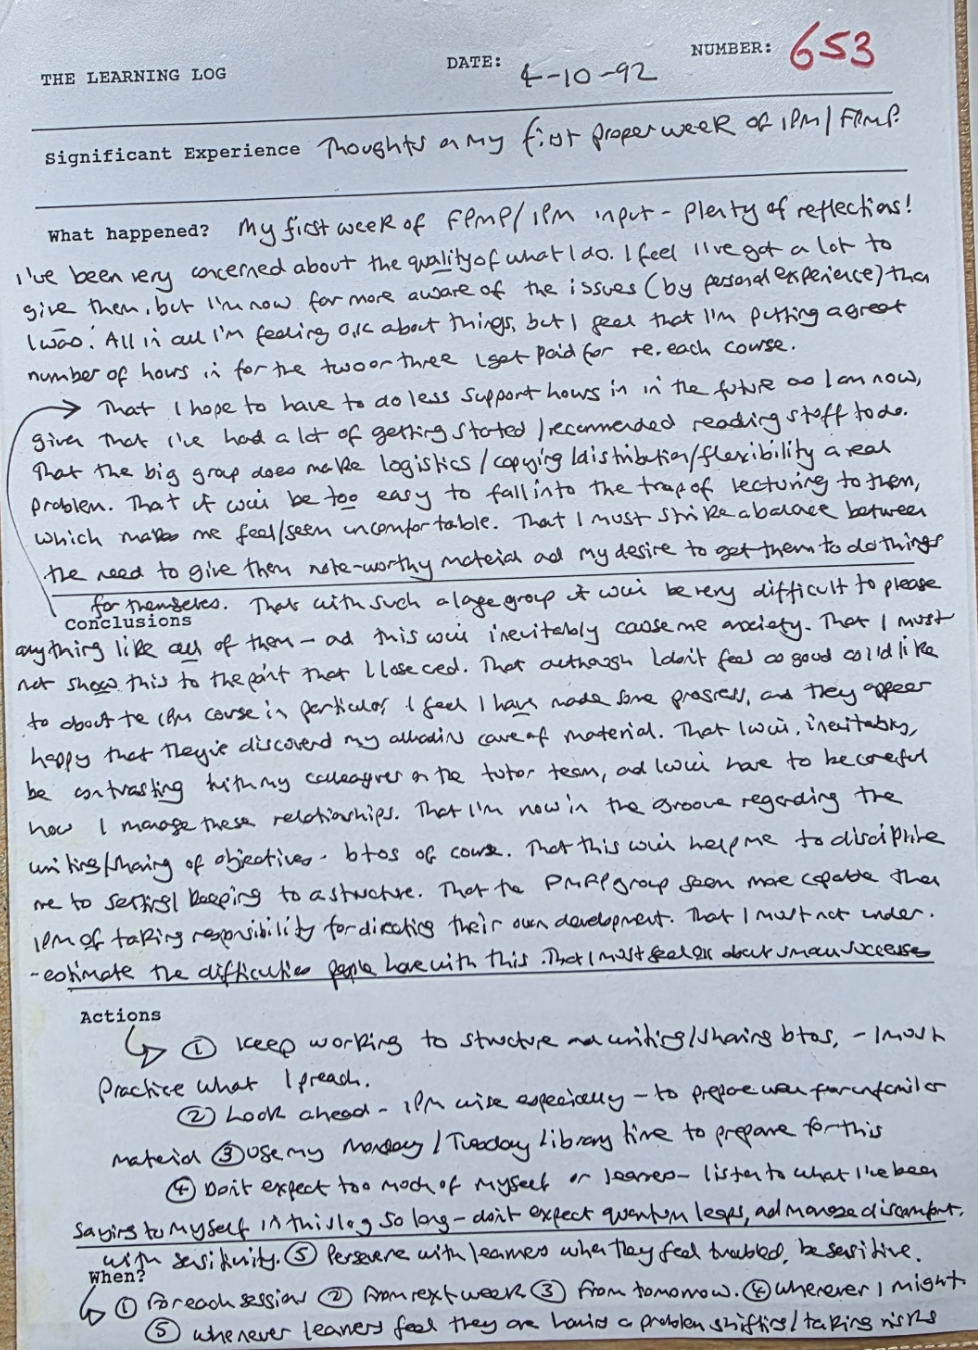 THE LEARNING LOG DATE: 4-10-92 NUMBER: 653
Significant Experience Thoughts on my first proper week of IPM/FPMP.
What happened? My first week of FPMP/IPM input - plenty of reflections!
I've been very concerned about the quality of what I do. I feel I've got a lot to
give them, but I'm now far more aware of the issues (by personal experience) than
I was. All in all I'm feeling O.K about things, but I feel that I'm putting a great
number of hours in for the two or three I get paid for re. each course.
That I hope to have to do less support hours in in the future as I am now,
given that I've had a lot of getting started/recommended reading stuff to do.
That the big group does make logistics/copying/distribution/flexibility a real
problem. That it will be too easy to fall into the trap of lecturing to them,
which makes me feel/seem uncomfortable. That I must strike a balance between
the need to give them note-worthy material and my desire to get them to do things
for themselves. That with such a large group it will be very difficult to please
Conclusions
anything like all of them - and this will inevitably cause me anxiety. That I must
not show this to the point that I lose cred. That although I don't feel as good as I'd like
to about the IPM course in particular, I feel I have made some progress, and they appear
happy that they've discovered my alladins cave of material. That I will, inevitably,
be contrasting with my colleagues on the tutor team, and I will have to be careful
how I manage these relationships. That I'm now in the groove regarding the
writing/sharing of objectives - btos of course. That this will help me to discipline
me to setting/keeping to a structure. That the PMFP group seem more capable than
IPM of taking responsibility for directing their own development. That I must not under.
-estimate the difficulties people have with this. That I must feel OK about small successes
Actions
① Keep working to structure and writing/sharing btos, - I must
practice what I preach.
② Look ahead - IPM wise especially - to prepare well for unfamiliar
material ③ Use my Monday/Tuesday library time to prepare for this
④ Don't expect too much of myself or learners - listen to what I've been
saying to myself in this log so long - don't expect quantum leaps, and manage discomfort,
with sensitivity. ⑤ Persevere with learners when they feel troubled, be sensitive.
When?
① For each session ② From next week ③ From tomorrow. ④ Wherever I might
⑤ Whenever learners feel they are having a problem shifting/taking risks